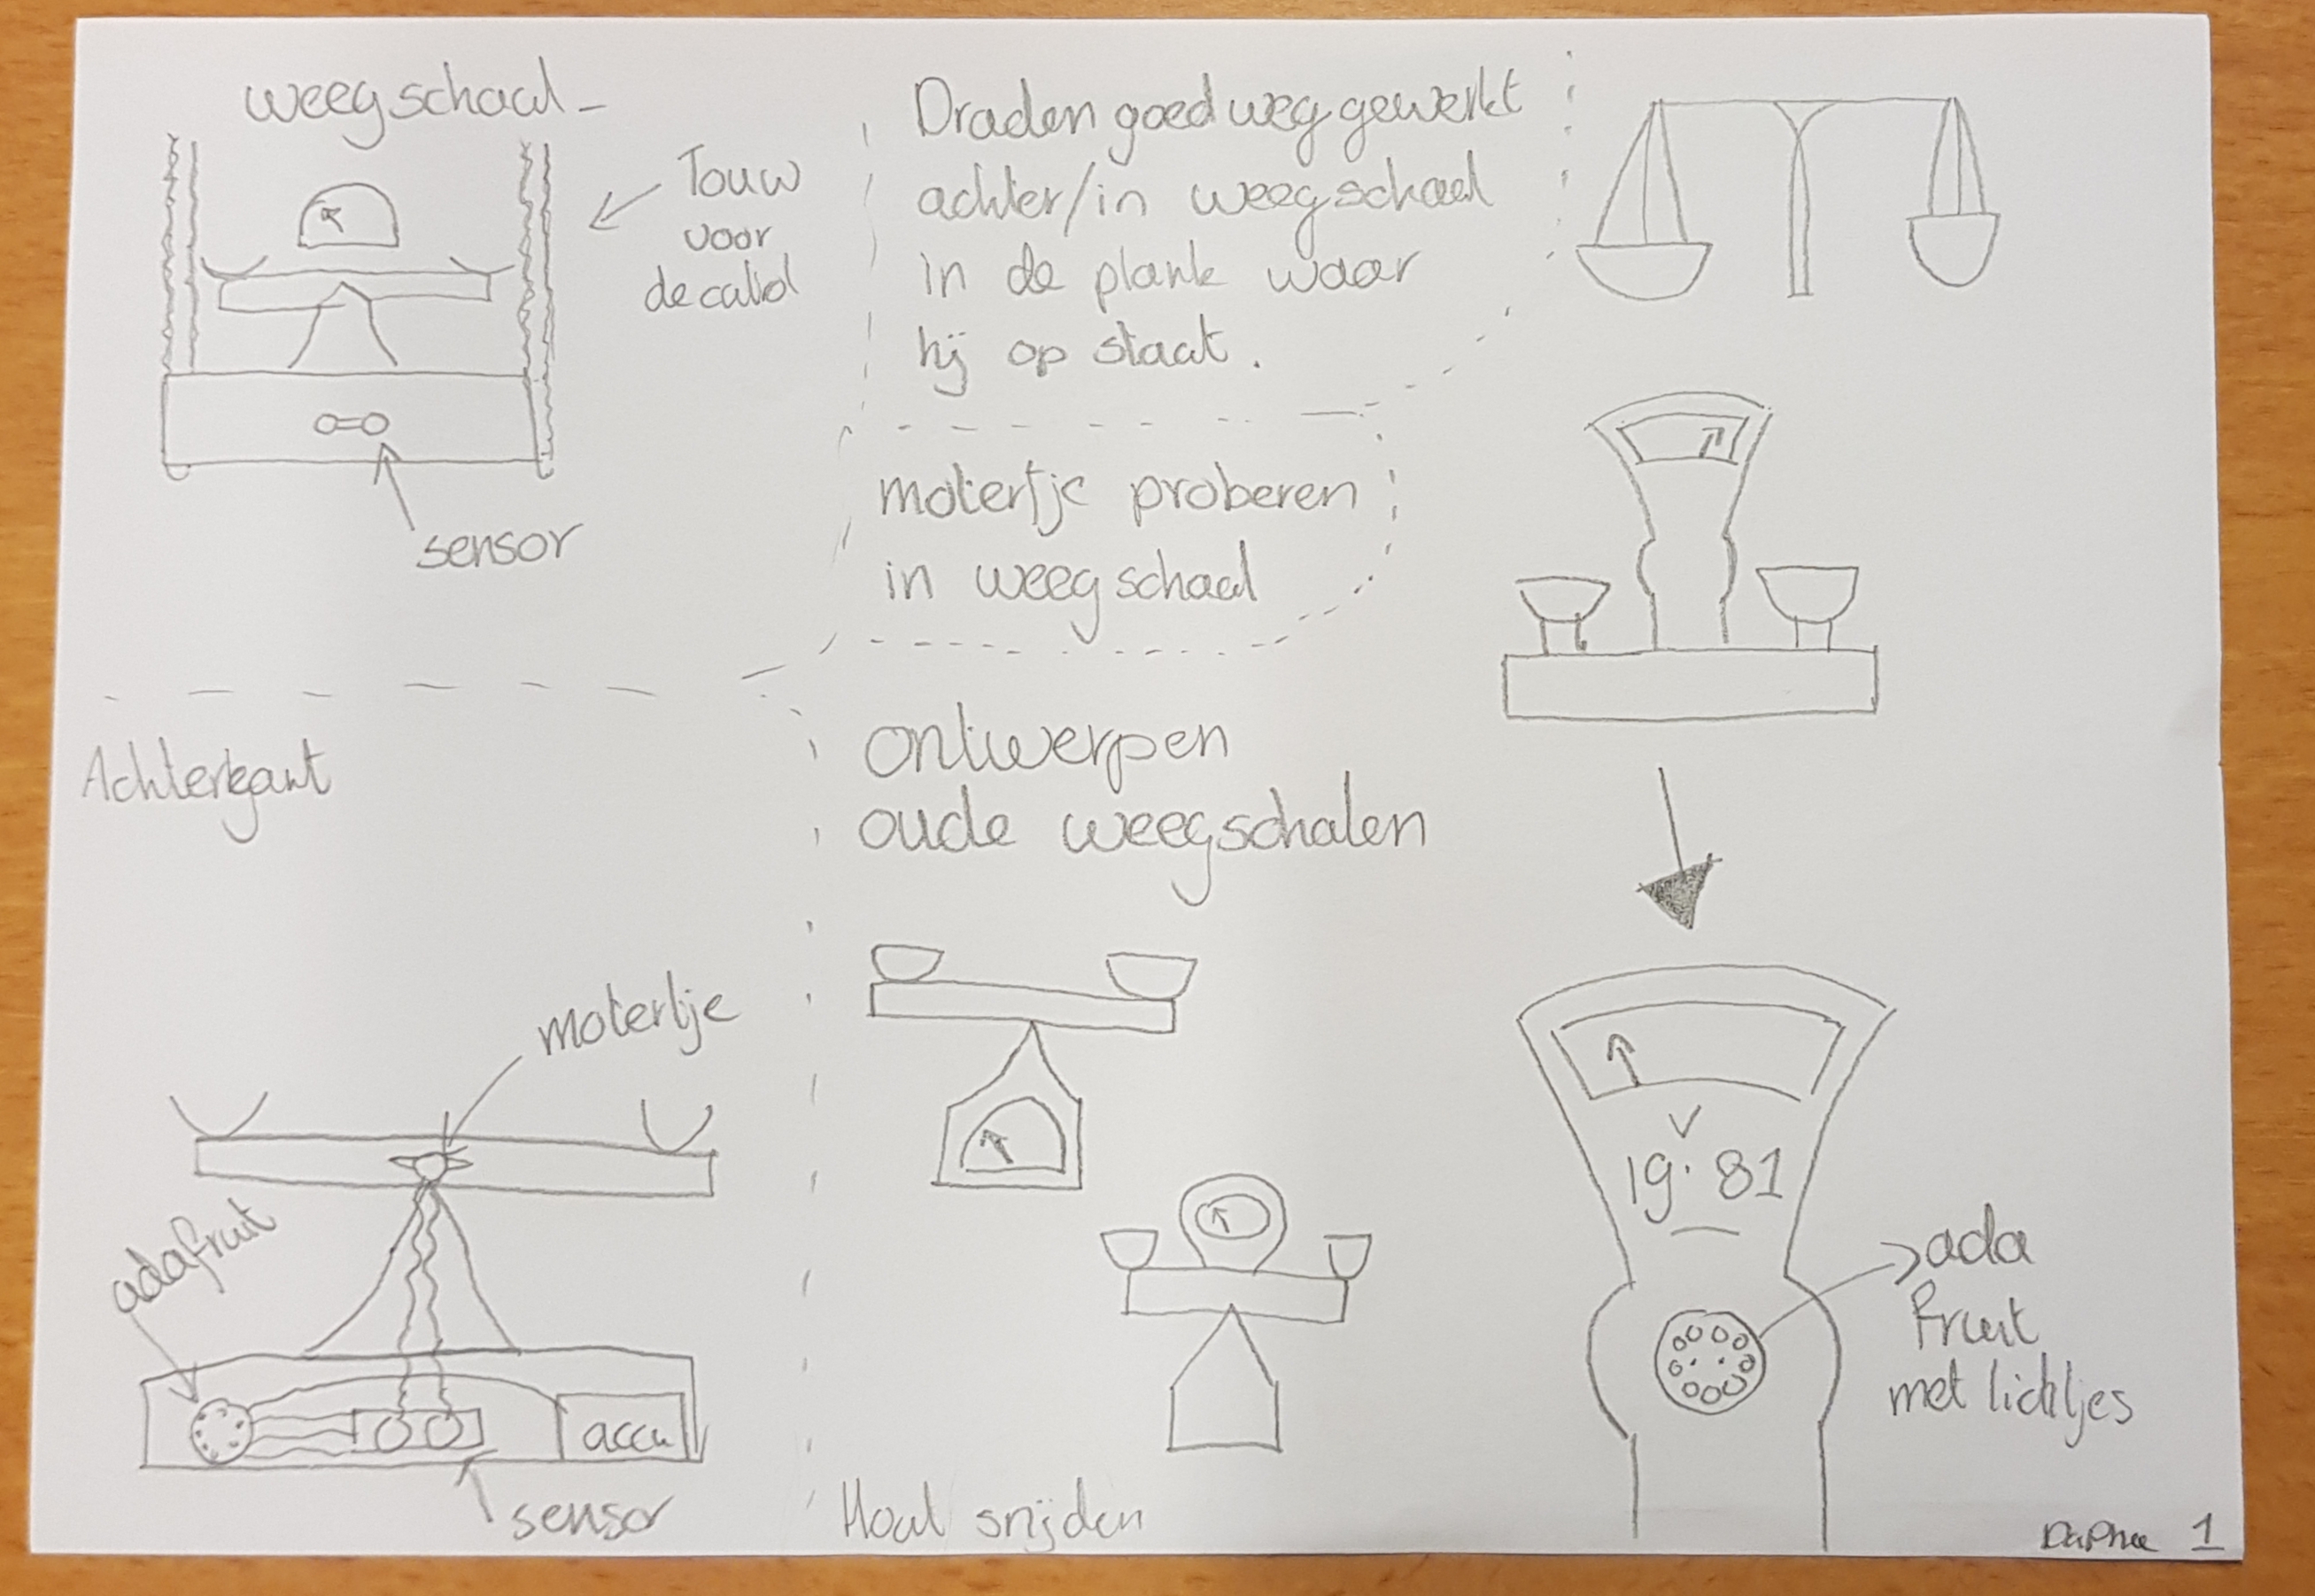 weegschaal -
Touw
voor
de caliol
sensor
Draden goed weg gewerkt
achter/in weegschaal
in de plank waar
hij op staat.
motertje proberen
in weegschaal
Achterkant
motertje
adafruit
accu
sensor
ontwerpen
oude weegschalen
Hout snijden
19.81
ada
fruit
met lichtjes
Daphne 1